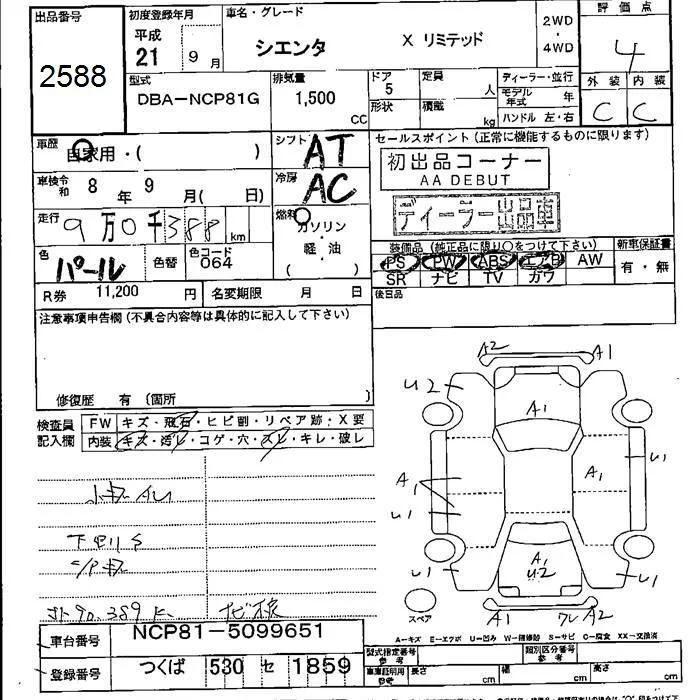 出品番号
2588
初度登録年月
平成
21 9 月
車名・グレード
シエンタ X リミテッド
2WD
・
4WD
評価点
4
外装 内装
C C
型式
DBA-NCP81G
排気量
1,500
CC
ドア
5
形状
定員
人
積載
kg
ディーラー・並行
モデル年式 年
ハンドル 左・右
車歴
自家用・( )
シフト
AT
車検令和 8 年 9 月( 日)
冷房
AC
走行
9万0千388 km
燃料
ガソリン
・
軽・油
( )
色
パール
色替
色コード
064
R券 11,200 円
名変期限 月 日
セールスポイント(正常に機能するものに限ります)
初出品コーナー
AA DEBUT
ディーラー出品車
装備品(純正品に限り〇をつけて下さい)
新車保証書
PS PW ABS エアB AW
有・無
SR ナビ TV カワ
後日品
注意事項申告欄(不具合内容等は具体的に記入して下さい)
修復歴 有(箇所 )
検査員
記入欄
FW キズ・飛石・ヒビ割・リペア跡・X要
内装 キズ・汚レ・コゲ・穴・スレ・キレ・破レ
小キズ
下回りS
外90,389K
ナビ
A2 A1
U2
A1
A1
U1
A1
U1
U1
A1
U2
U1
A1 ワレ A2
スペア
A-キズ E-エクボ U-凹み W-補修跡 S-サビ C-腐食 XX-交換済
車台番号
NCP81-5099651
登録番号
つくば 530 セ 1859
型式指定番号
参考
類別区分番号
参考
車庫証明用
参考
長さ cm 幅 cm 高さ cm